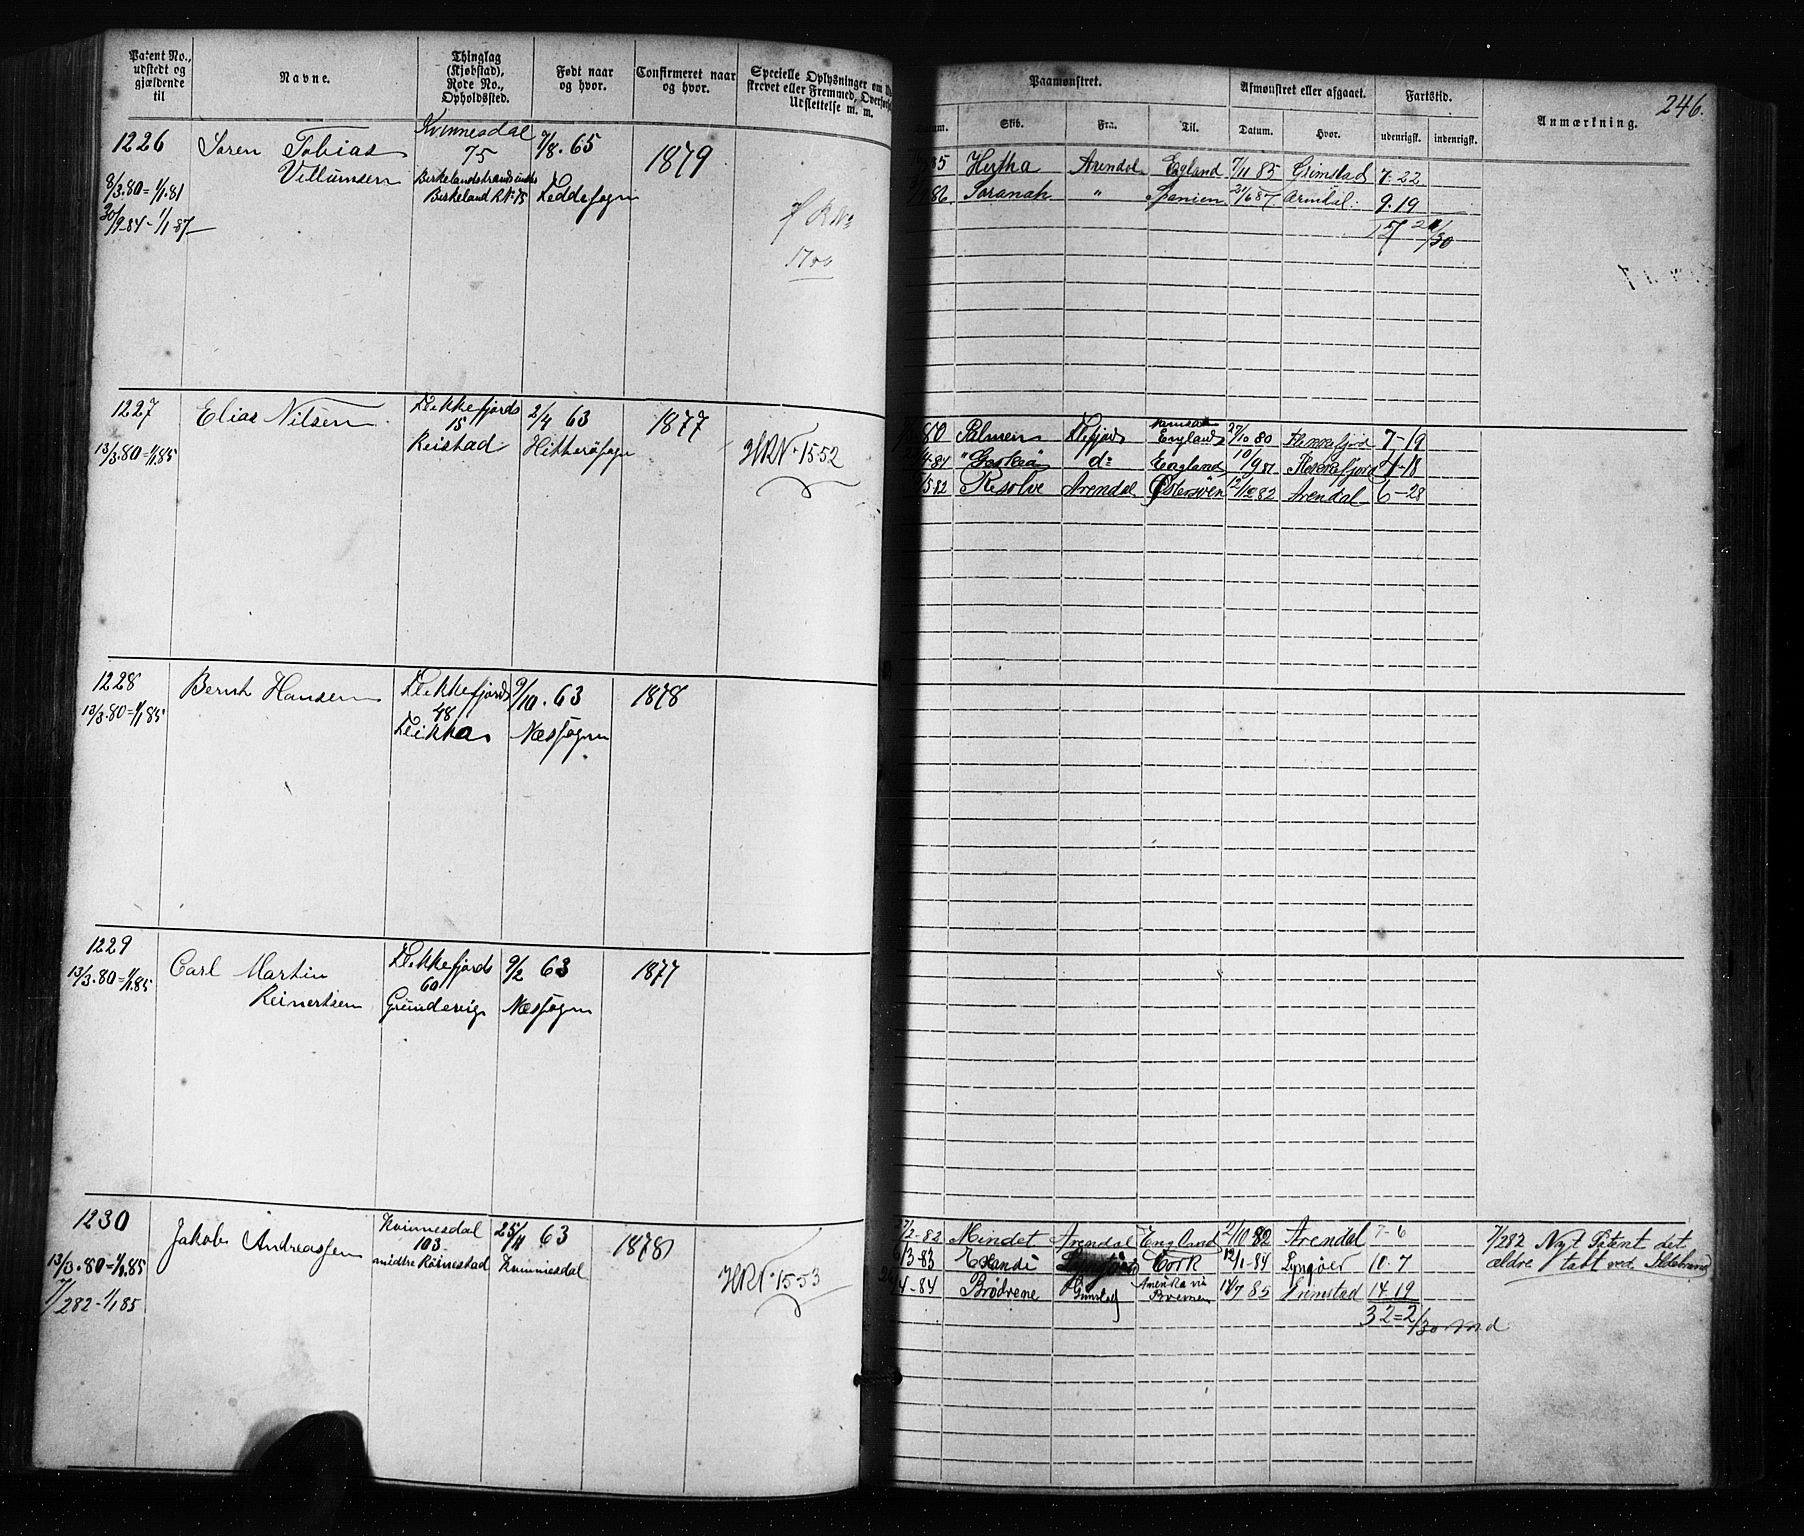 Patent No., udstedt og gjældende til
Navne.
Thinglag (Kjøbstad), Rode No., Opholdssted.
Født naar og hvor.
Confirmeret naar og hvor.
Specielle Oplysninger om
strevet eller Fremmed,
Udslettelse m. m.
Paamønstret.
Skib.
Fra.
Til.
Afmønstret eller afgaaet.
Datum.
Hvor.
Fartstid.
udenrigst.
indenrigst.
Anmærkning.
246.
1226
8/3.80=1/1.81
30/9 84-1/1 87
Søren Tobias
Villumsen
Kvinnesdal
75
Birkeland R.N. 75
7/8.65
Feddesogn
1879
1700
85 Hertha Arendal England 7/11 85 Grimstad 7.22
86 Saranak " Spanien 21/6 87 Arendal. 9.19
1227
13/3.80=1/1.85
Elias Nilsen
Flekkefjords
15
Reistad
2/4 63
Hitterøsogn
1877
HRN. 1552
80 Palmen England 27/10 80 Flekkefjord 7-19
do England 10/9 81 Flekkefjord
82 Resolve Arendal Østersøen 12/12 82 Arendal 6-28
1228
13/3.80=1/1 85
Bernt Hansen
Flekkefjords
48
Flikka
9/10.63
Næssogn
1878
1229
13/3.80=1/1.85
Carl Martin
Reinertsen
Flekkefjords
60
Grundevig
9/2 63
Næssogn
1877
1230
13/3.80=1/1.85
7/2 82-1/1 85
Jakob Andreassen
Kvinnesdal
103
midtre Röinestad
25/11 63
Kvinnesdal
1878
HRN. 1553
7/2-82 Mindet Arendal England 2/10 82 Arendal 7-6
3-83 Cork 12/1-84 Lyngøer 10-7
24/4-84 Brødrene Grimstad Amerika via Bremen 14/7 85 Grimstad 14 19
32=2/30 Md
7/2 82 Nyt Patent det
ældre tabt ved